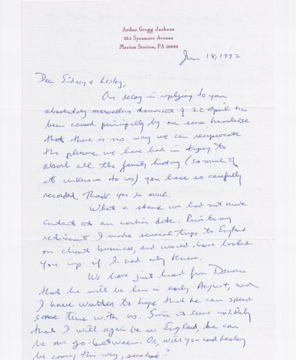 Arthur Gregg Jackson
224 Sycamore Avenue
Merion Station, PA
June 18, 1992
Dear Sidney & Lesley,
Our delay in replying to your
absolutely marvellous document of 22 April has
been caused principally by our sense
that there is no way we can reciprocate
the pleasure we have had in trying to
absorb all the family history (so much of
it unknown to us) you have so carefully
recorded. Thank you so much.
What a shame we had not made
contact at an earlier date. Prior to my
retirement I made several trips to England
on client business, and would have looked
you up if I had only known.
We have just heard from
that he will be here in early August, and
I have written to hope that he can spend
some time with us. Since it seems not likely
that I will again be in England he can
be our go-between. Or, will you and Lesley
be coming this way, someday?